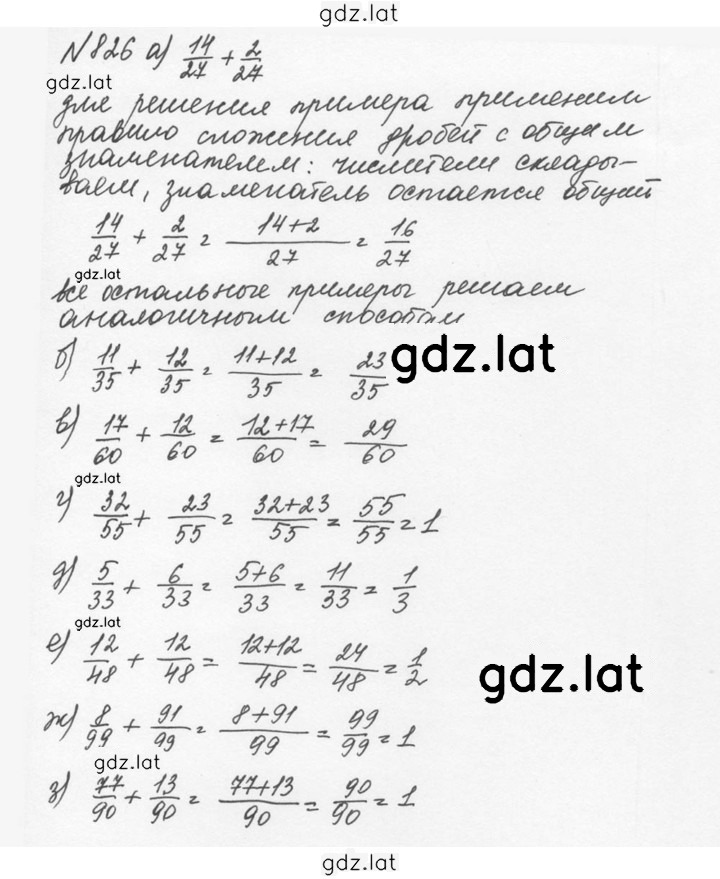 gdz.lat
№826 а) 14/27 + 2/27
gdz.lat
для решения примера применим
правило сложения дробей с общим
знаменателем: числители склады-
ваем, знаменатель остается общий
14/27 + 2/27 = 14+2/27 = 16/27
gdz.lat
все остальные примеры решаем
аналогичным способом
б) 11/35 + 12/35 = 11+12/35 = 23/35
gdz.lat
в) 17/60 + 12/60 = 12+17/60 = 29/60
gdz.lat
г) 32/55 + 23/55 = 32+23/55 = 55/55 = 1
д) 5/33 + 6/33 = 5+6/33 = 11/33 = 1/3
gdz.lat
е) 12/48 + 12/48 = 12+12/48 = 24/48 = 1/2
gdz.lat
ж) 8/99 + 91/99 = 8+91/99 = 99/99 = 1
gdz.lat
з) 77/90 + 13/90 = 77+13/90 = 90/90 = 1
gdz.lat